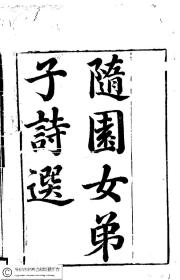 隨園女弟
子詩選